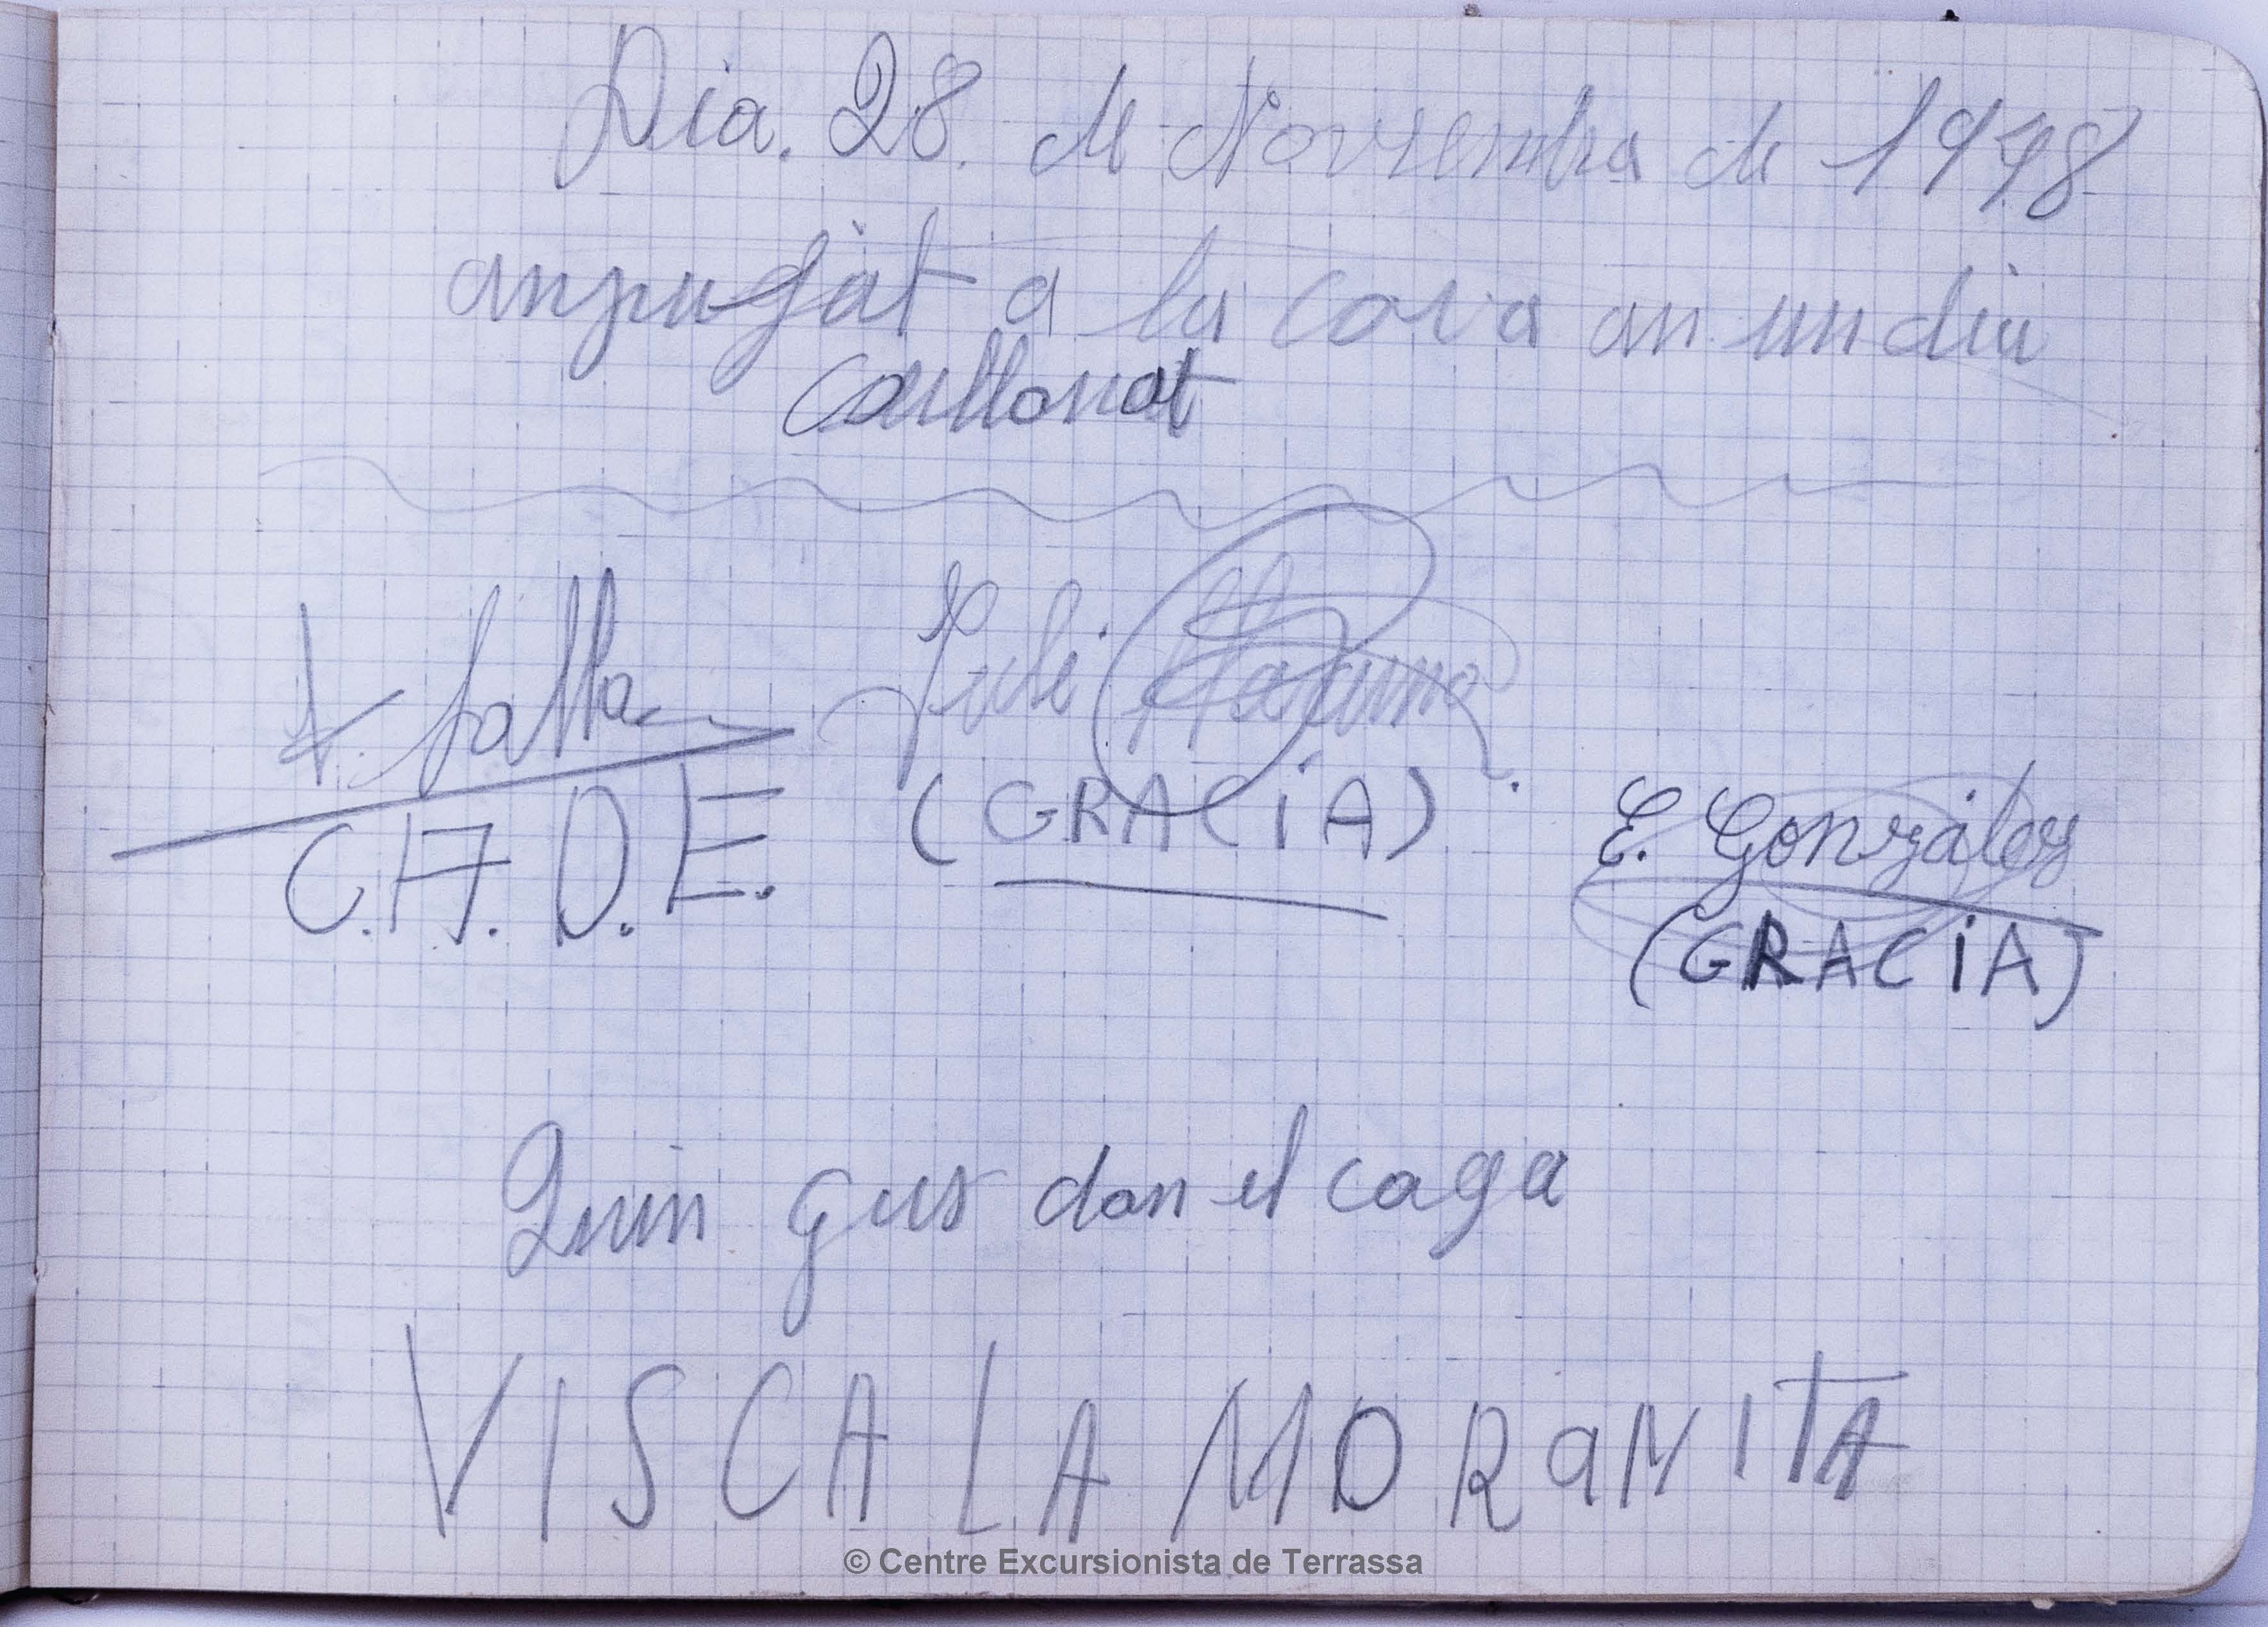 Dia. 28. de Novrembra de 1948
anpugat a la cova an un dia
A. falla
C.A.D.E.
Juli
(GRACIA)
E. González
(GRACIA)
Quin gus don el caga
VISCA LA MORANITA
© Centre Excursionista de Terrassa